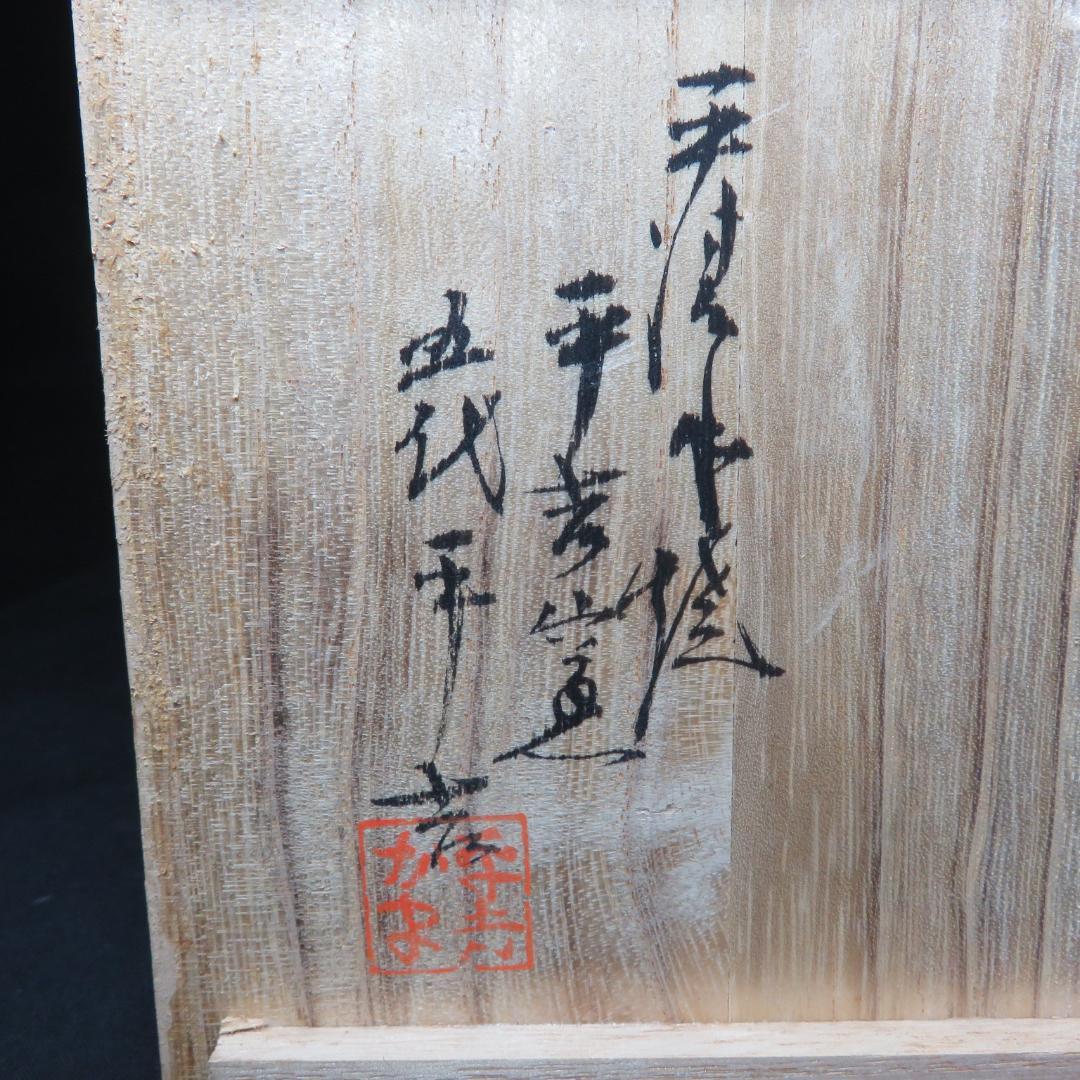 平清水焼
平吉窯
五代平吉
平吉
がま